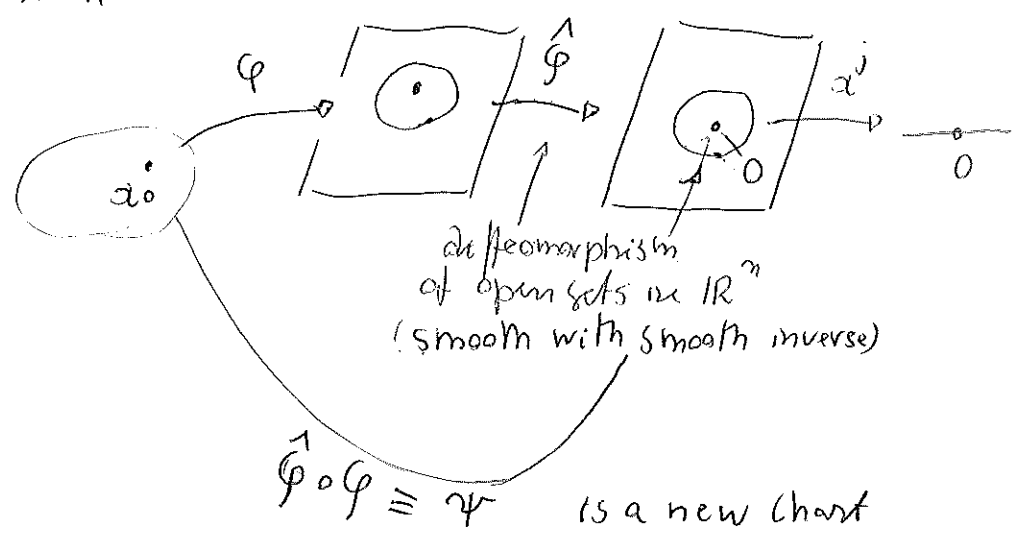 φ
φ̂
x^j
x₀
0
0
diffeomorphism
of open sets in ℝ^n
(smooth with smooth inverse)
φ̂ ∘ φ ≡ ψ is a new chart